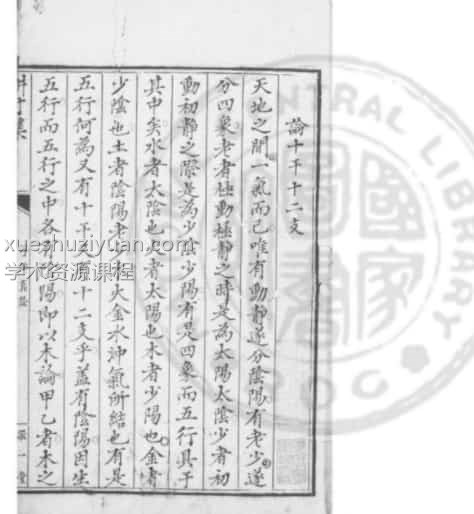 論十干十二支
天地之間一氣而已唯有動靜遂分陰陽有老少遂
分四象老者極動極靜之時是為太陽太陰少者初
動初靜之際是為少陰少陽有是四象而五行具于
其中矣水者太陰也火者太陽也木者少陽也金者
少陰也土者陰陽老少木火金水沖氣所結也有是
五行何為又有十干十二支乎蓋有陰陽因生
五行而五行之中各有陰陽即以木論甲乙者木之
xueshuziyuan.com
学术资源课程
CENTRAL LIBRARY
ROC